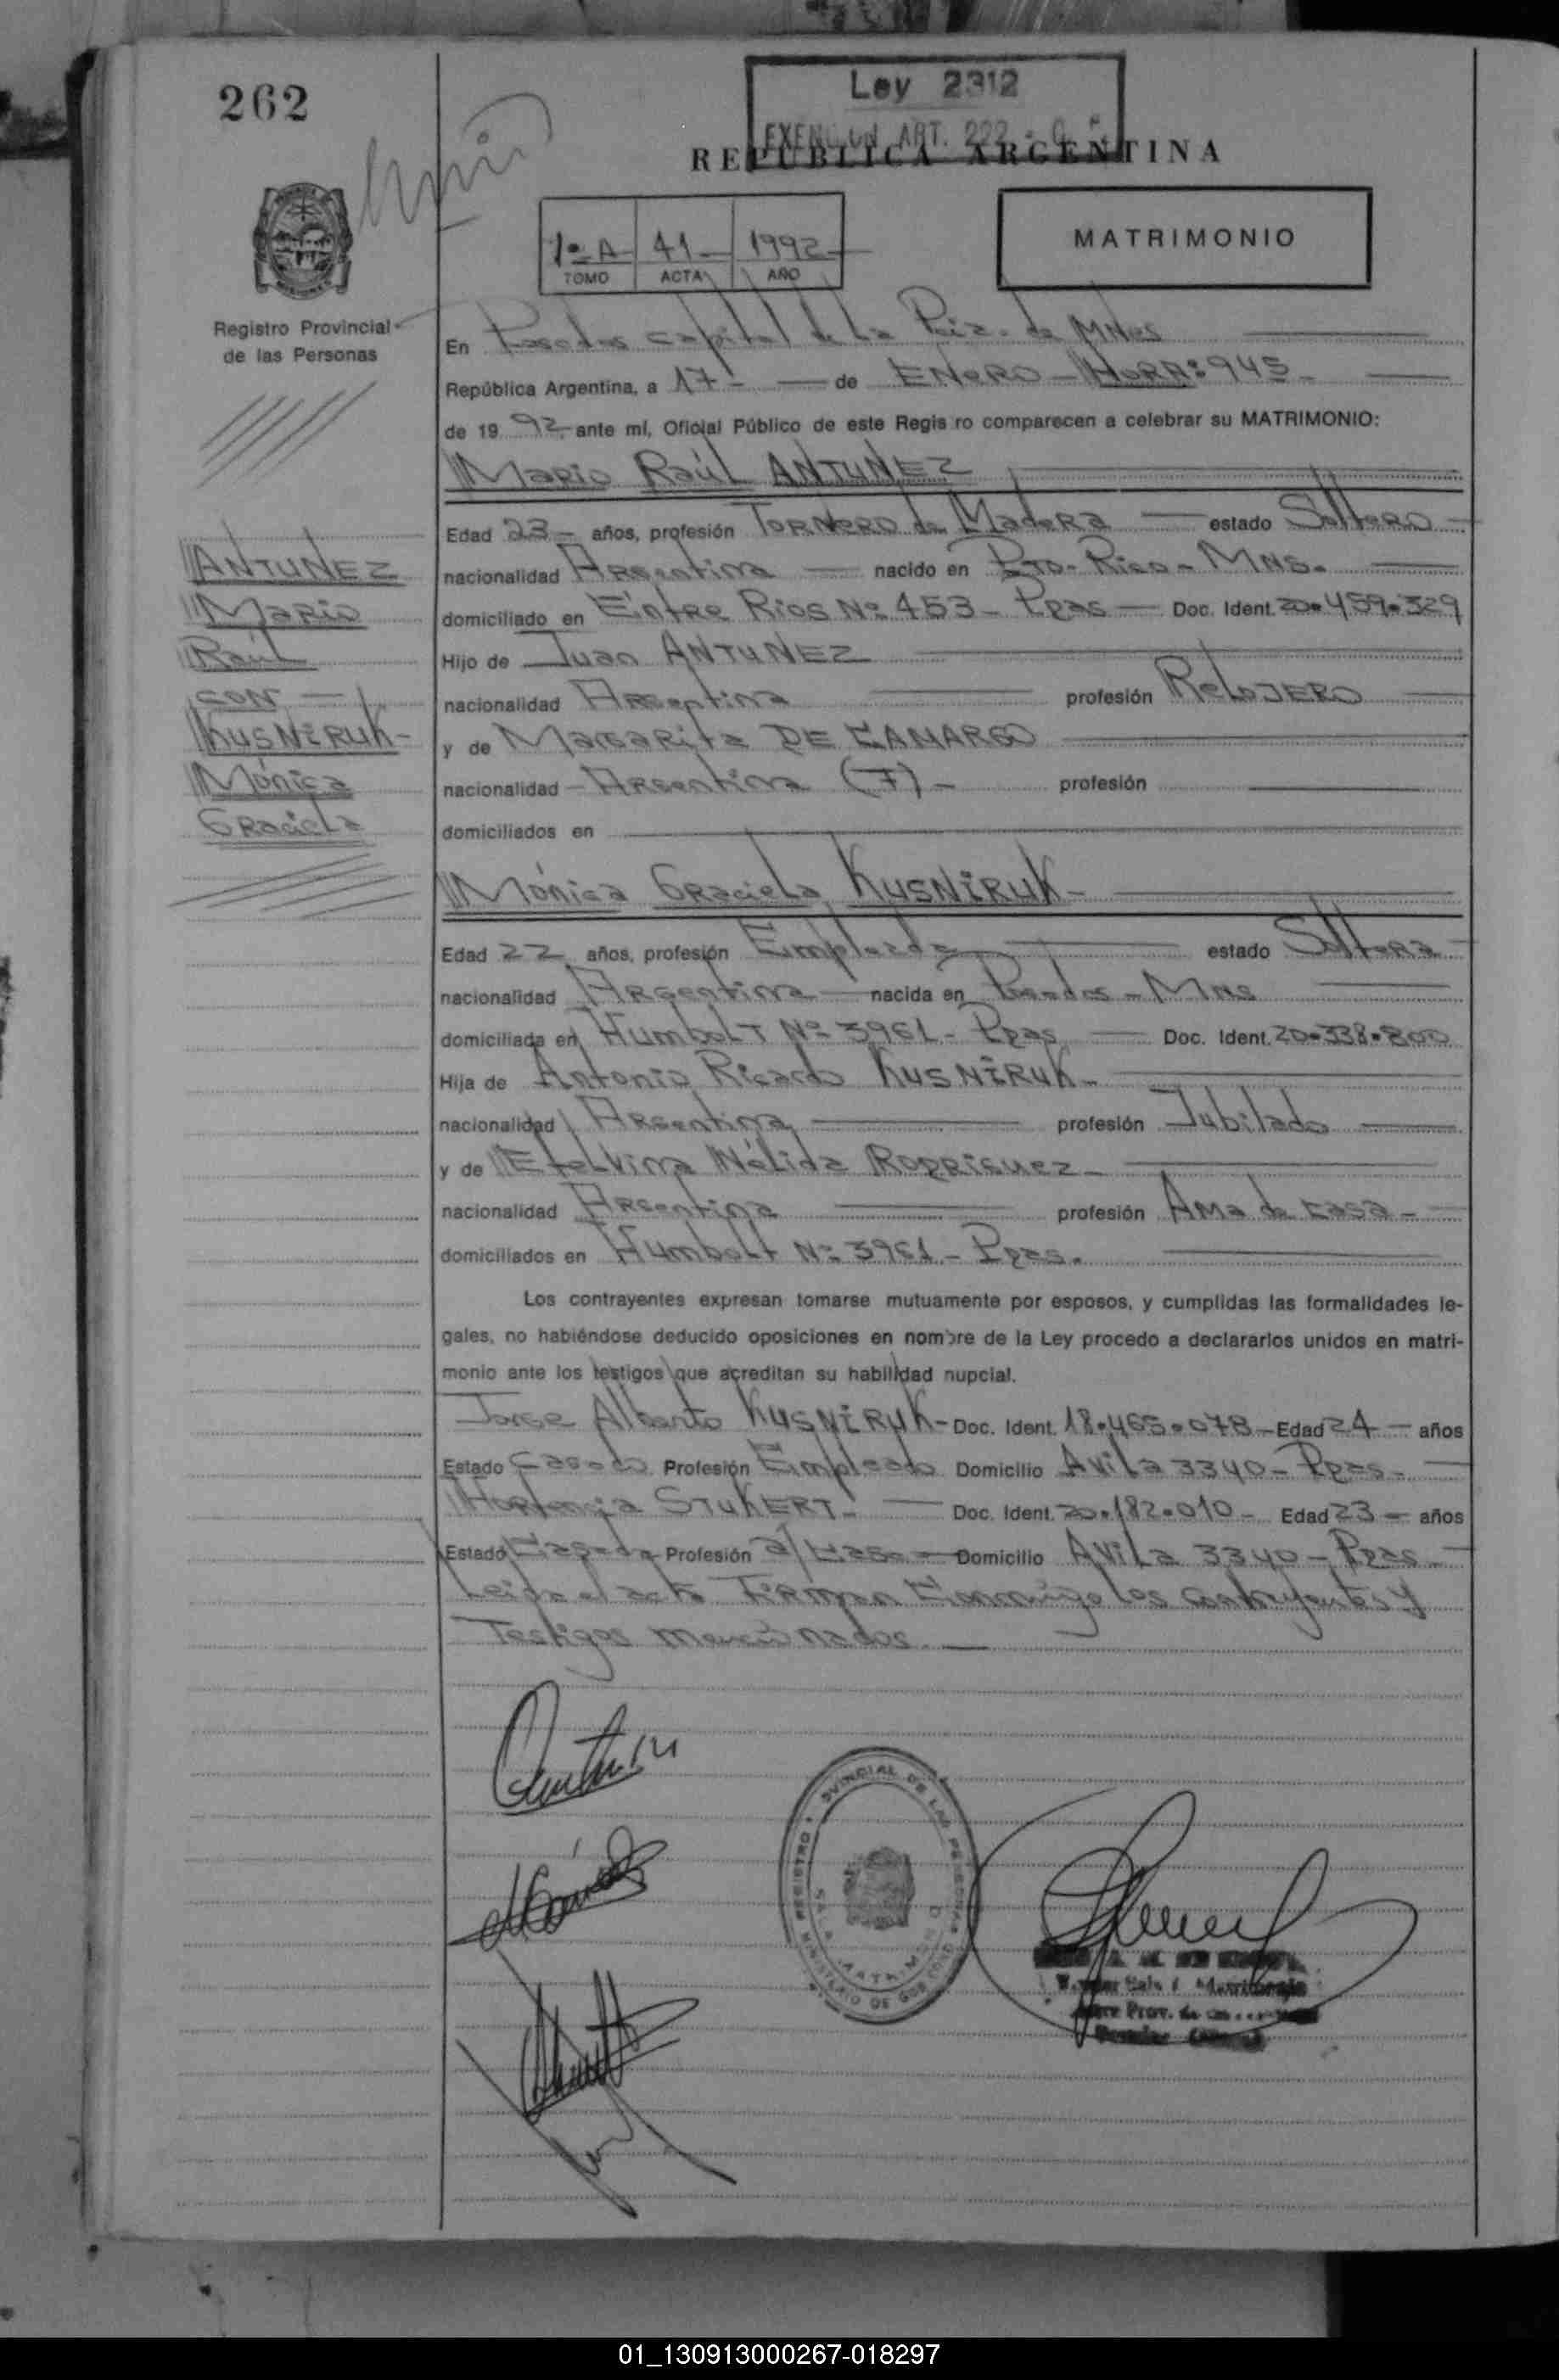 262
Ley 2312
EXENCION ART. 222
REPUBLICA ARGENTINA
1º A 41 1992
TOMO ACTA AÑO
MATRIMONIO
Registro Provincial
de las Personas
En Posadas capital de la Pcia. de MNES
República Argentina, a 17 de ENERO - HORA: 945
de 19 92 ante mí, Oficial Público de este Regis ro comparecen a celebrar su MATRIMONIO:
Mario Raúl ANTUNEZ
Edad 23 - años, profesión TORNERO de Madera estado Soltero
nacionalidad Argentina nacido en Pto- Rico - MNS.
domiciliado en Entre Rios Nº 453 - Ppas Doc. Ident. 20.459.329
Hijo de Juan ANTUNEZ
nacionalidad Argentina profesión RELOJERO
y de Margarita DE CAMARGO
nacionalidad - Argentina (F) - profesión
domiciliados en
ANTUNEZ
Mario
Raúl
CON
KUSNIRUK -
Mónica
Graciela
Mónica Graciela KUSNIRUK -
Edad 22 años, profesión Empleada estado Soltera
nacionalidad Argentina nacida en Posadas - MNS
domiciliada en Humbolt Nº 3961 - Ppas Doc. Ident. 20.338.800
Hija de Antonio Ricardo KUSNIRUK -
nacionalidad Argentina profesión Jubilado
y de Etelvina Nélida RODRIGUEZ -
nacionalidad Argentina profesión Ama de casa -
domiciliados en Humbolt Nº 3961 - Ppas.
Los contrayentes expresan tomarse mutuamente por esposos, y cumplidas las formalidades le-
gales, no habiéndose deducido oposiciones en nombre de la Ley procedo a declararlos unidos en matri-
monio ante los testigos que acreditan su habilidad nupcial.
Jorge Alberto KUSNIRUK - Doc. Ident. 18.465.078 - Edad 24 - años
Estado Casado Profesión Empleado Domicilio Avila 3340 - Ppas -
Hortencia STUKERT - Doc. Ident. 20.182.010 - Edad 23 - años
Estado Casada Profesión a/ casa - Domicilio Avila 3340 - Ppas -
Leida el acta Firman Conmigo los contrayentes y
Testigos mencionados.
REGISTRO PROVINCIAL DE LAS PERSONAS
MINISTERIO DE GOBIERNO
SALA MATRIMONIO
01_130913000267-018297